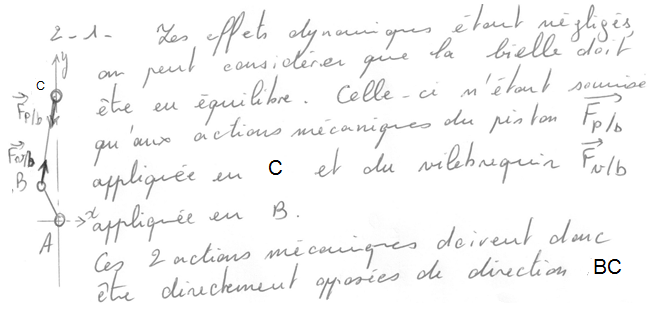 2-1- Les effets dynamiques étant négligés,
y
on peut considérer que la bielle doit
C
être en équilibre. Celle-ci n'étant soumise
F p/b
qu'aux actions mécaniques du piston F p/b
appliquée en C et du vilebrequin F v/b
F v/b
B
x
appliquée en B.
A
Ces 2 actions mécaniques doivent donc
être directement opposées de direction BC